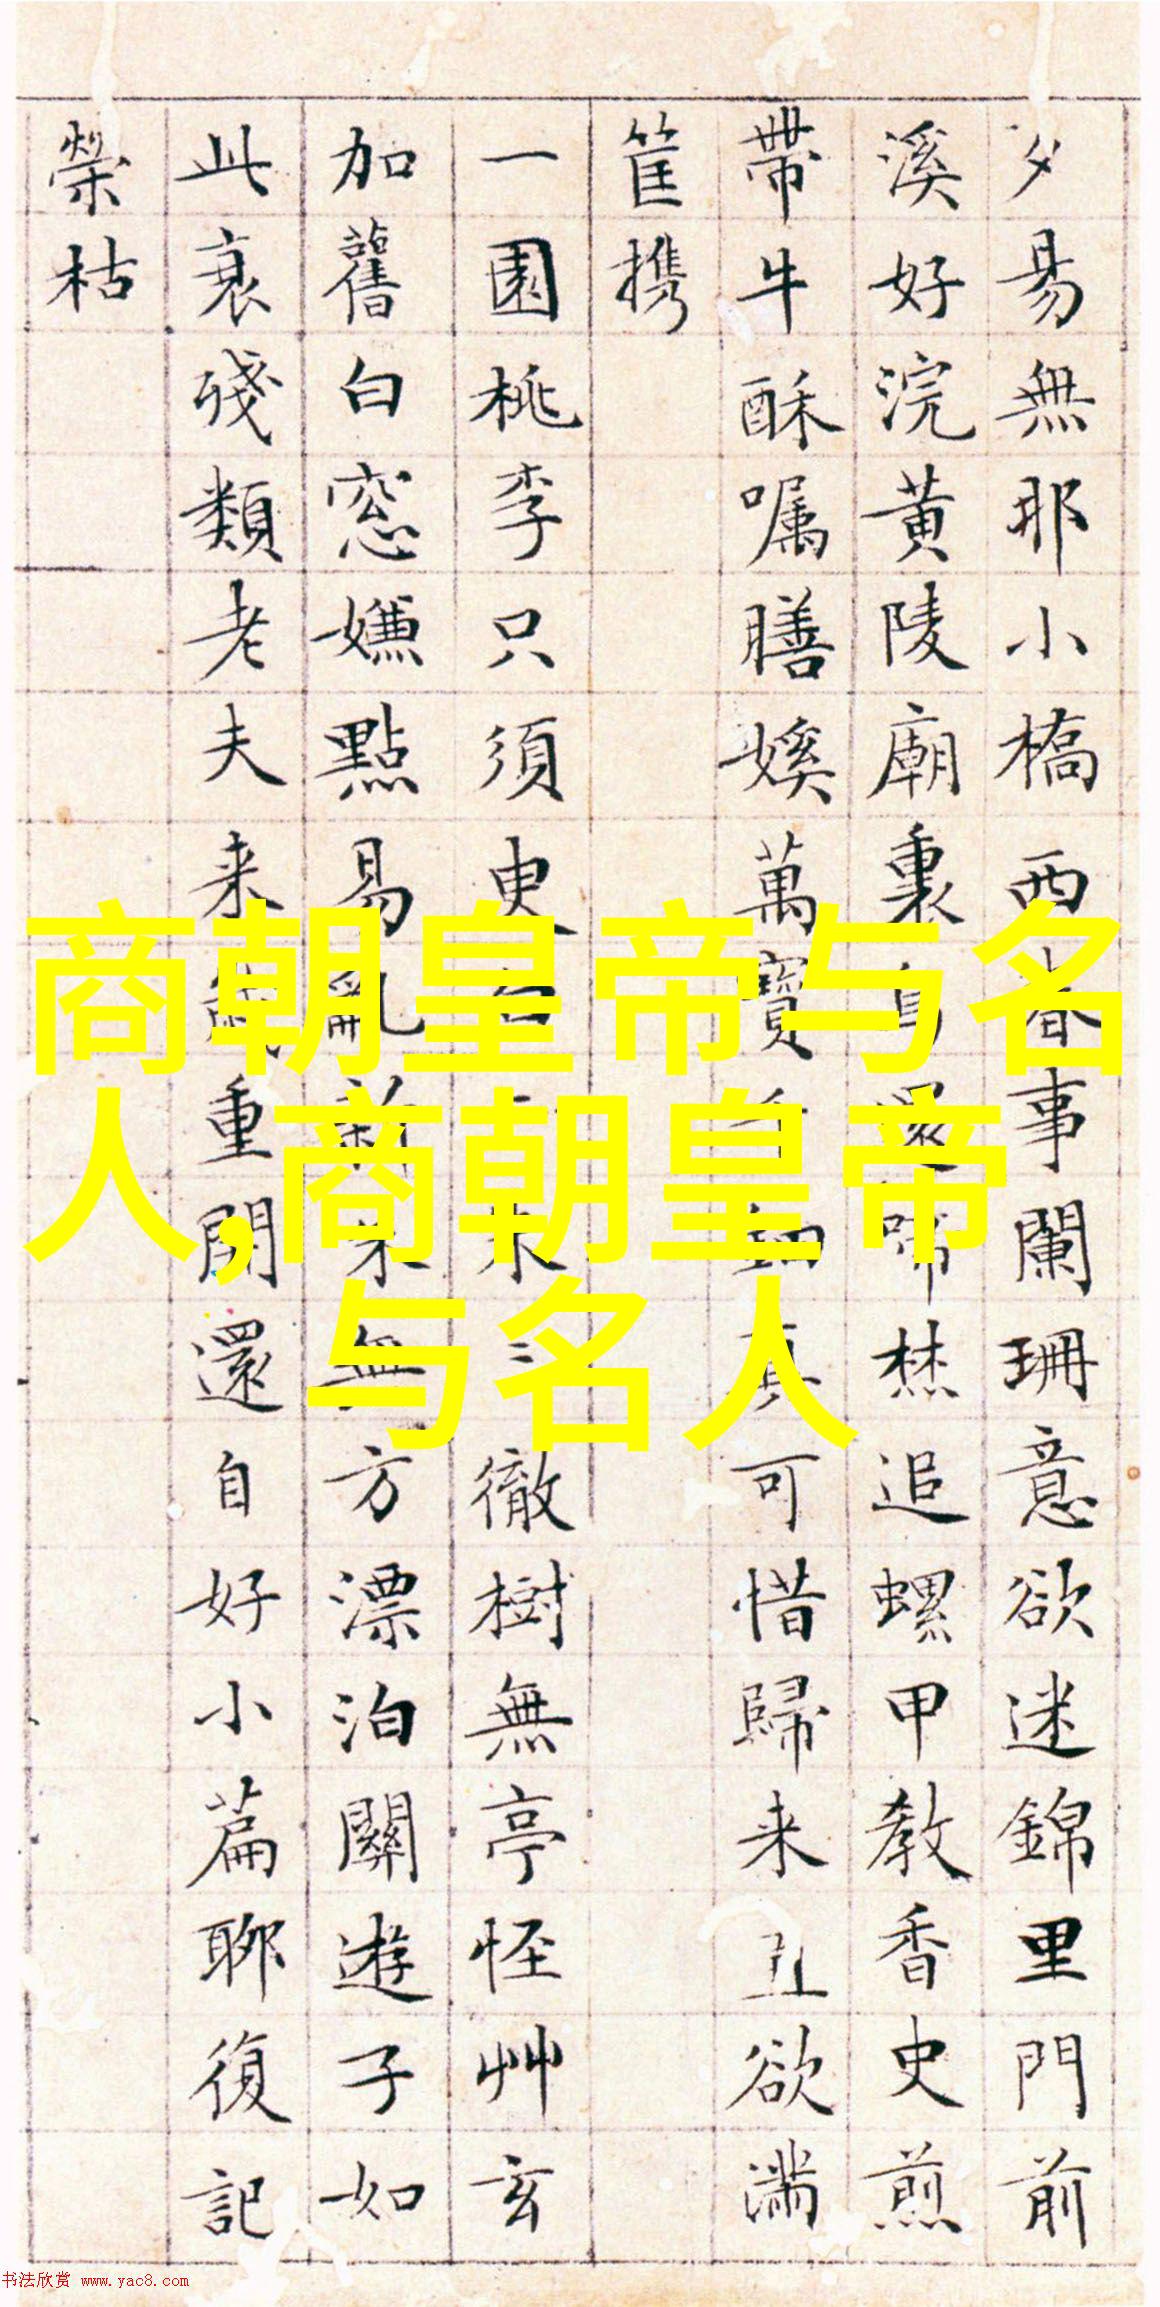 夕易無耶小橋西春事闌珊意欲迷錦里門前
溪好浣黄陵廟裏啼楚追螺甲教香史煎
帶牛酥嘱膳萬寶真可惜歸来丑欲滿
筐携
一園桃李只須臾白朱三徹樹無亭怪艸玄
加舊白窓嫌點易亂新朱無方漂泊關遊子如
此衰殘類老夫来重開還自好小篇聊復記
榮枯
商朝皇帝与名
人,商朝皇帝
与名人
书法欣赏 www.yac8.com